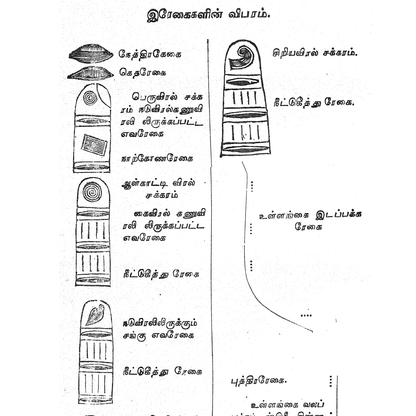 இரேகைகளின் விபரம்.
நேத்திரரேகை
கெதரேகை
பெருவிரல் சக்க
ரம் நடுவிரல்கணுவி
ரலி லிருக்கப்பட்ட
எவரேகை
நாற்கோணரேகை
ஆள்காட்டி விரல்
சக்கரம்
கைவிரல் கணுவி
ரலி லிருக்கப்பட்ட
எவரேகை
நீட்டுகீத்து ரேகை
நடுவிரலிலிருக்கும்
சங்கு எவரேகை
நீட்டுகீத்து ரேகை
சிறியவிரல் சக்கரம்.
நீட்டுகீத்து ரேகை.
உள்ளங்கை இடப்பக்க
ரேகை
புத்திரரேகை.
உள்ளங்கை வலப்